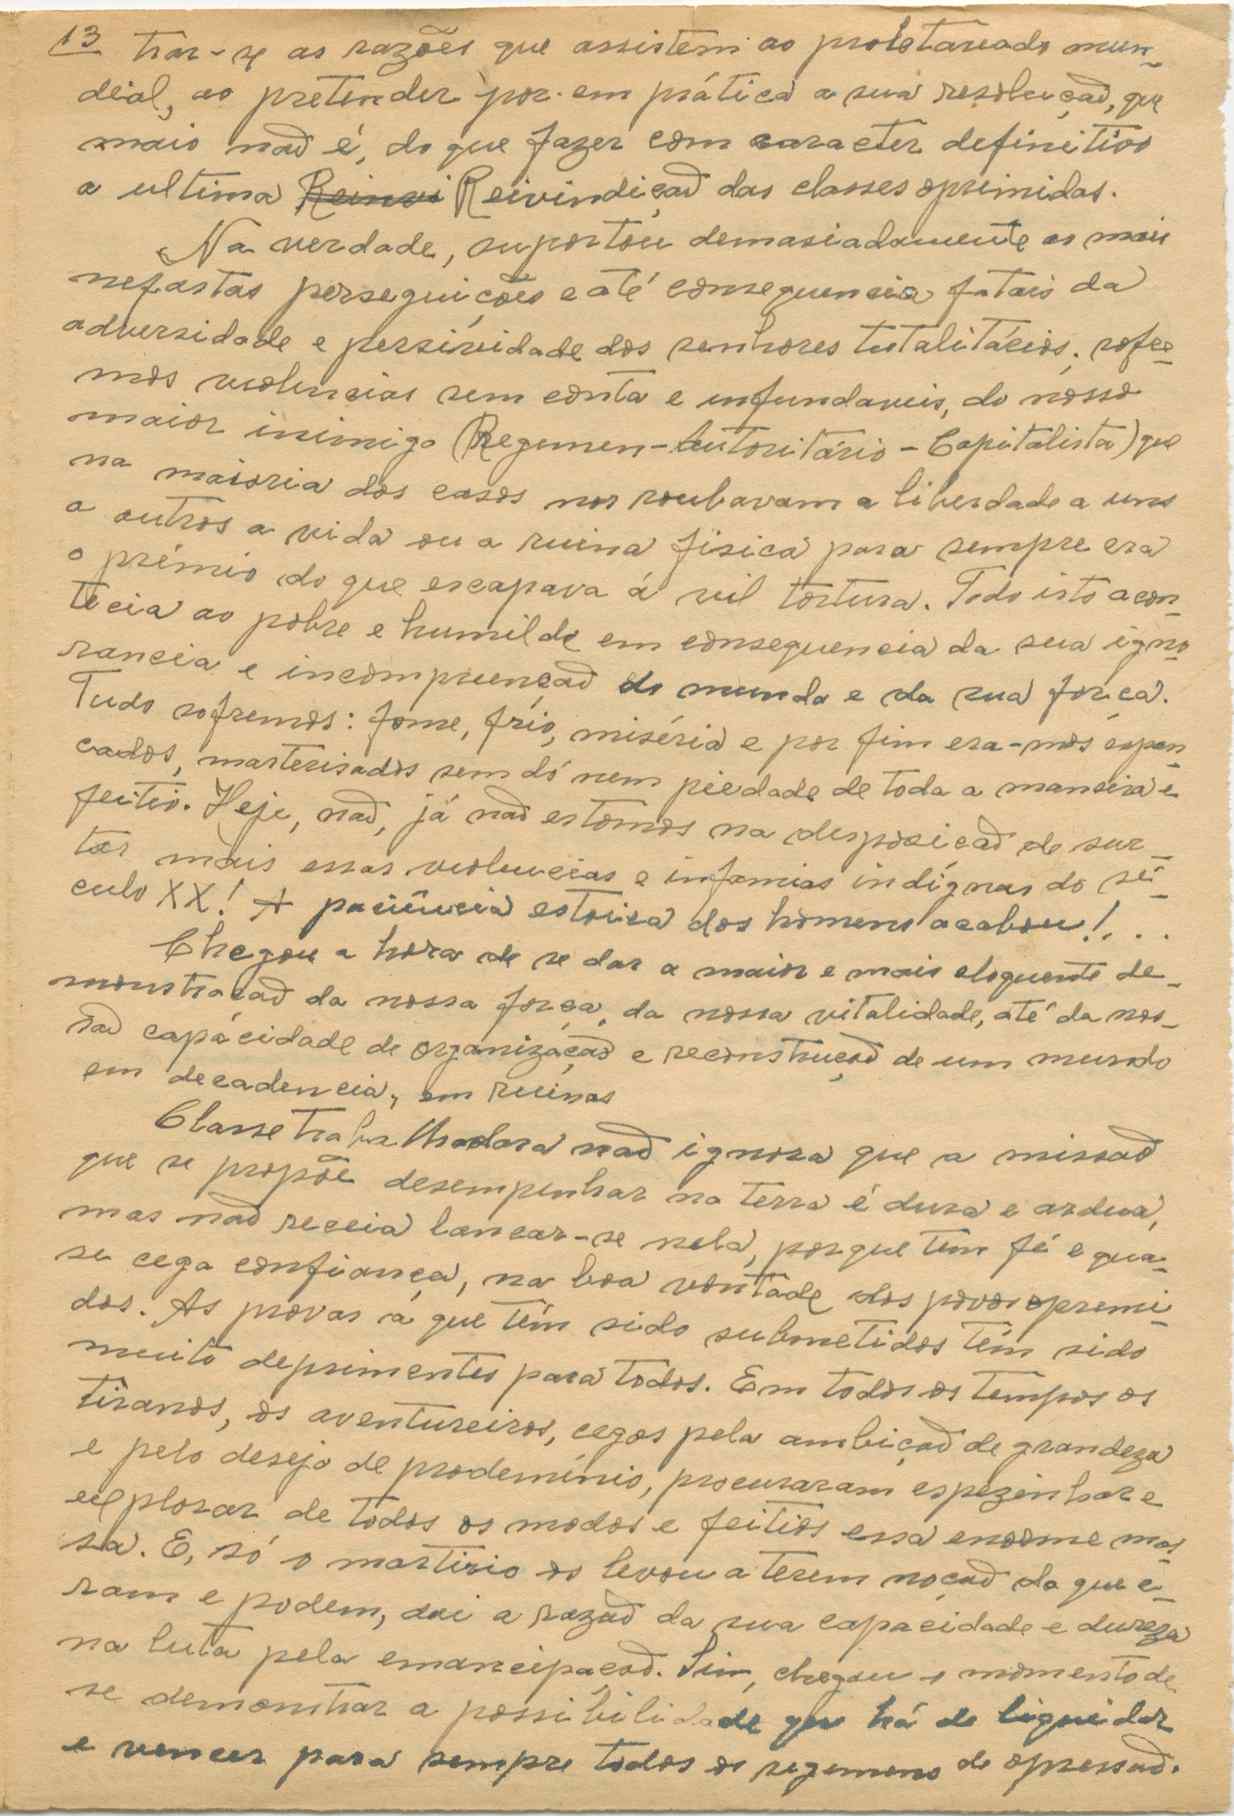 13 trar-se as razões que assistem ao proletareado mun-
deial, ao pretender por em prática a sua resoluçaõ, que
mais naõ é, do que fazer com caracter definitivo
a ultima Reinvi Reivindiçaõ das classes oprimidas.
Na verdade, suportou demasiadamente as mais
nefastas perseguições e até consequencia fatais da
adversidade e dos senhores totalitários; sofre-
mos violencias sem conta e infundaveis, do nosso
maior inimigo (Regemen-Autoritário-Capitalista) que
na maioria dos casos nos roubavam a liberdade a uns
a outros a vida ou a ruina fisica para sempre era
o prémio do que escapava á vil tortura. Todo isto acon-
tecia ao pobre e humilde em consequencia da sua igno-
rancia e incompreençaõ do mundo e da sua força.
Tudo sofremos: fome, frio, miséria e por fim era-mos espan-
cados, marterisados sem dó nem piedade de toda a maneira e
feitio. Heje, naõ, já naõ estamos na desposicaõ de sur-
tar mais essas violencias e infamias indígnas do sé-
culo XX! A paciência estoica dos homens acabou!...
Chegou a hora de se dar a maior e mais eloquente de-
monstraçaõ da nossa força, da nossa vitalidade, até da nos-
sa capácidade de organizaçaõ e reconstruçaõ de um mundo
em decadencia, em ruinas
Classe trabalhadora naõ ignora que a missaõ
que se propõe desempenhar na terra é dura e ardua,
mas naõ receia lancar-se nela, porque tem fé e qua-
se cega confiança, na boa vontade dos povos opremi-
dos. As provas á que têm sido submetidos têm sido
muito deprimentes para todos. Em todos os tempos os
tiranos, os aventureiros, cegos pela ambiçaõ de grandeza
e pelo desejo de prodemínio, procuraram espezinhar e
explorar de todos os modos e feitios essa enorme mas-
sa. E, só o martirio os levou a terem noçaõ do que e-
ram e podem, dai a razaõ da sua capacidade e dureza
na luta pela emancipaçaõ. Sim, chegou o momento de
se demonstrar a possibilidade que há de liquidar
e vencer para sempre todos os regemens de opressaõ.